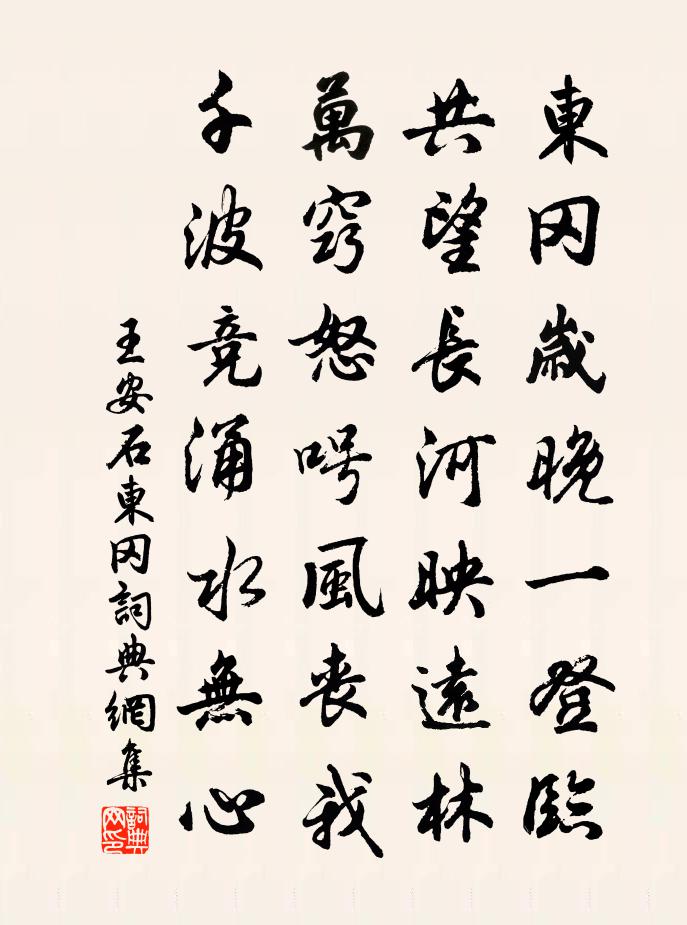 東冈歲晚一登臨
共望長河映遠林
萬竅怒呺風喪我
千波竞涌水無心
王安石東冈詞典網集
詞典网印